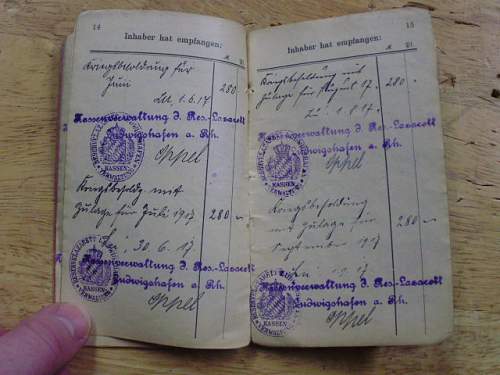 14
Inhaber hat empfangen:
M
Pf.
Kriegsbesoldung für
Juni
280
Lu, 1.6.17
Kassenverwaltung d. Res-Lazarett
Ludwigshafen a. Rh.
KASSEN-
VERWALTUNG
Oppel
Kriegsbesoldg. mit
Zulage für Juli 1917
280 -
30.6.17
Kassenverwaltung d. Res-Lazarett
Ludwigshafen a. Rh.
KASSEN-
VERWALTUNG
Oppel
15
Inhaber hat empfangen:
M
Pf.
Kriegsbesoldung mit
Zulage für August 17.
280 -
Lu. 1.8.17.
Kassenverwaltung d. Res-Lazarett
Ludwigshafen a. Rh.
KASSEN-
VERWALTUNG
Oppel
Kriegsbesoldung
mit Zulage für
280 -
September 1917
Kassenverwaltung d. Res-Lazarett
Ludwigshafen a. Rh.
KASSEN-
Oppel